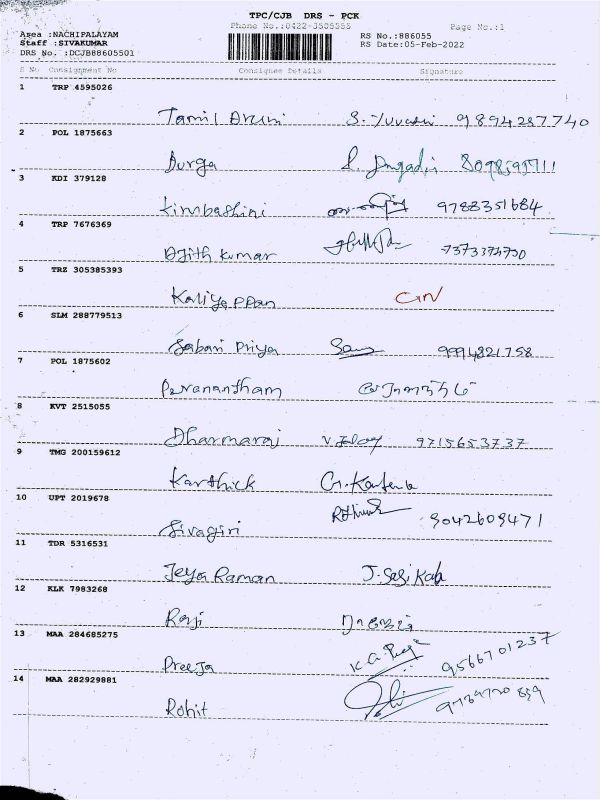 TPC/CJB DRS - PCK
Phone No.:0422-3505555 Page No.:1
Area :NACHIPALAYAM
Staff :SIVAKUMAR
DRS No. :DCJB88605501
RS No.:886055
RS Date:05-Feb-2022
S No Consignment No Consignee Details Signature
1 TRP 4595026
Tamil Arun S. Yuvarani 9894287740
2 POL 1875663
Durga 8098595711
3 KDI 379128
kinbashini 9788351684
4 TRP 7676369
Ajith kumar 7373374730
5 TRZ 305385393
Kaliyappan GN
6 SLM 288779513
Sabari Priya 9994821758
7 POL 1875602
Paranantham
8 KVT 2515055
Dharmaraj 9715653737
9 TMG 200159612
Karthick
10 UPT 2019678
Sivagiri 9042609471
11 TDR 5316531
Jeya Raman J. Sasikala
12 KLK 7983268
Raji
13 MAA 284685275
Preeja 9566701237
14 MAA 282929881
Rohit